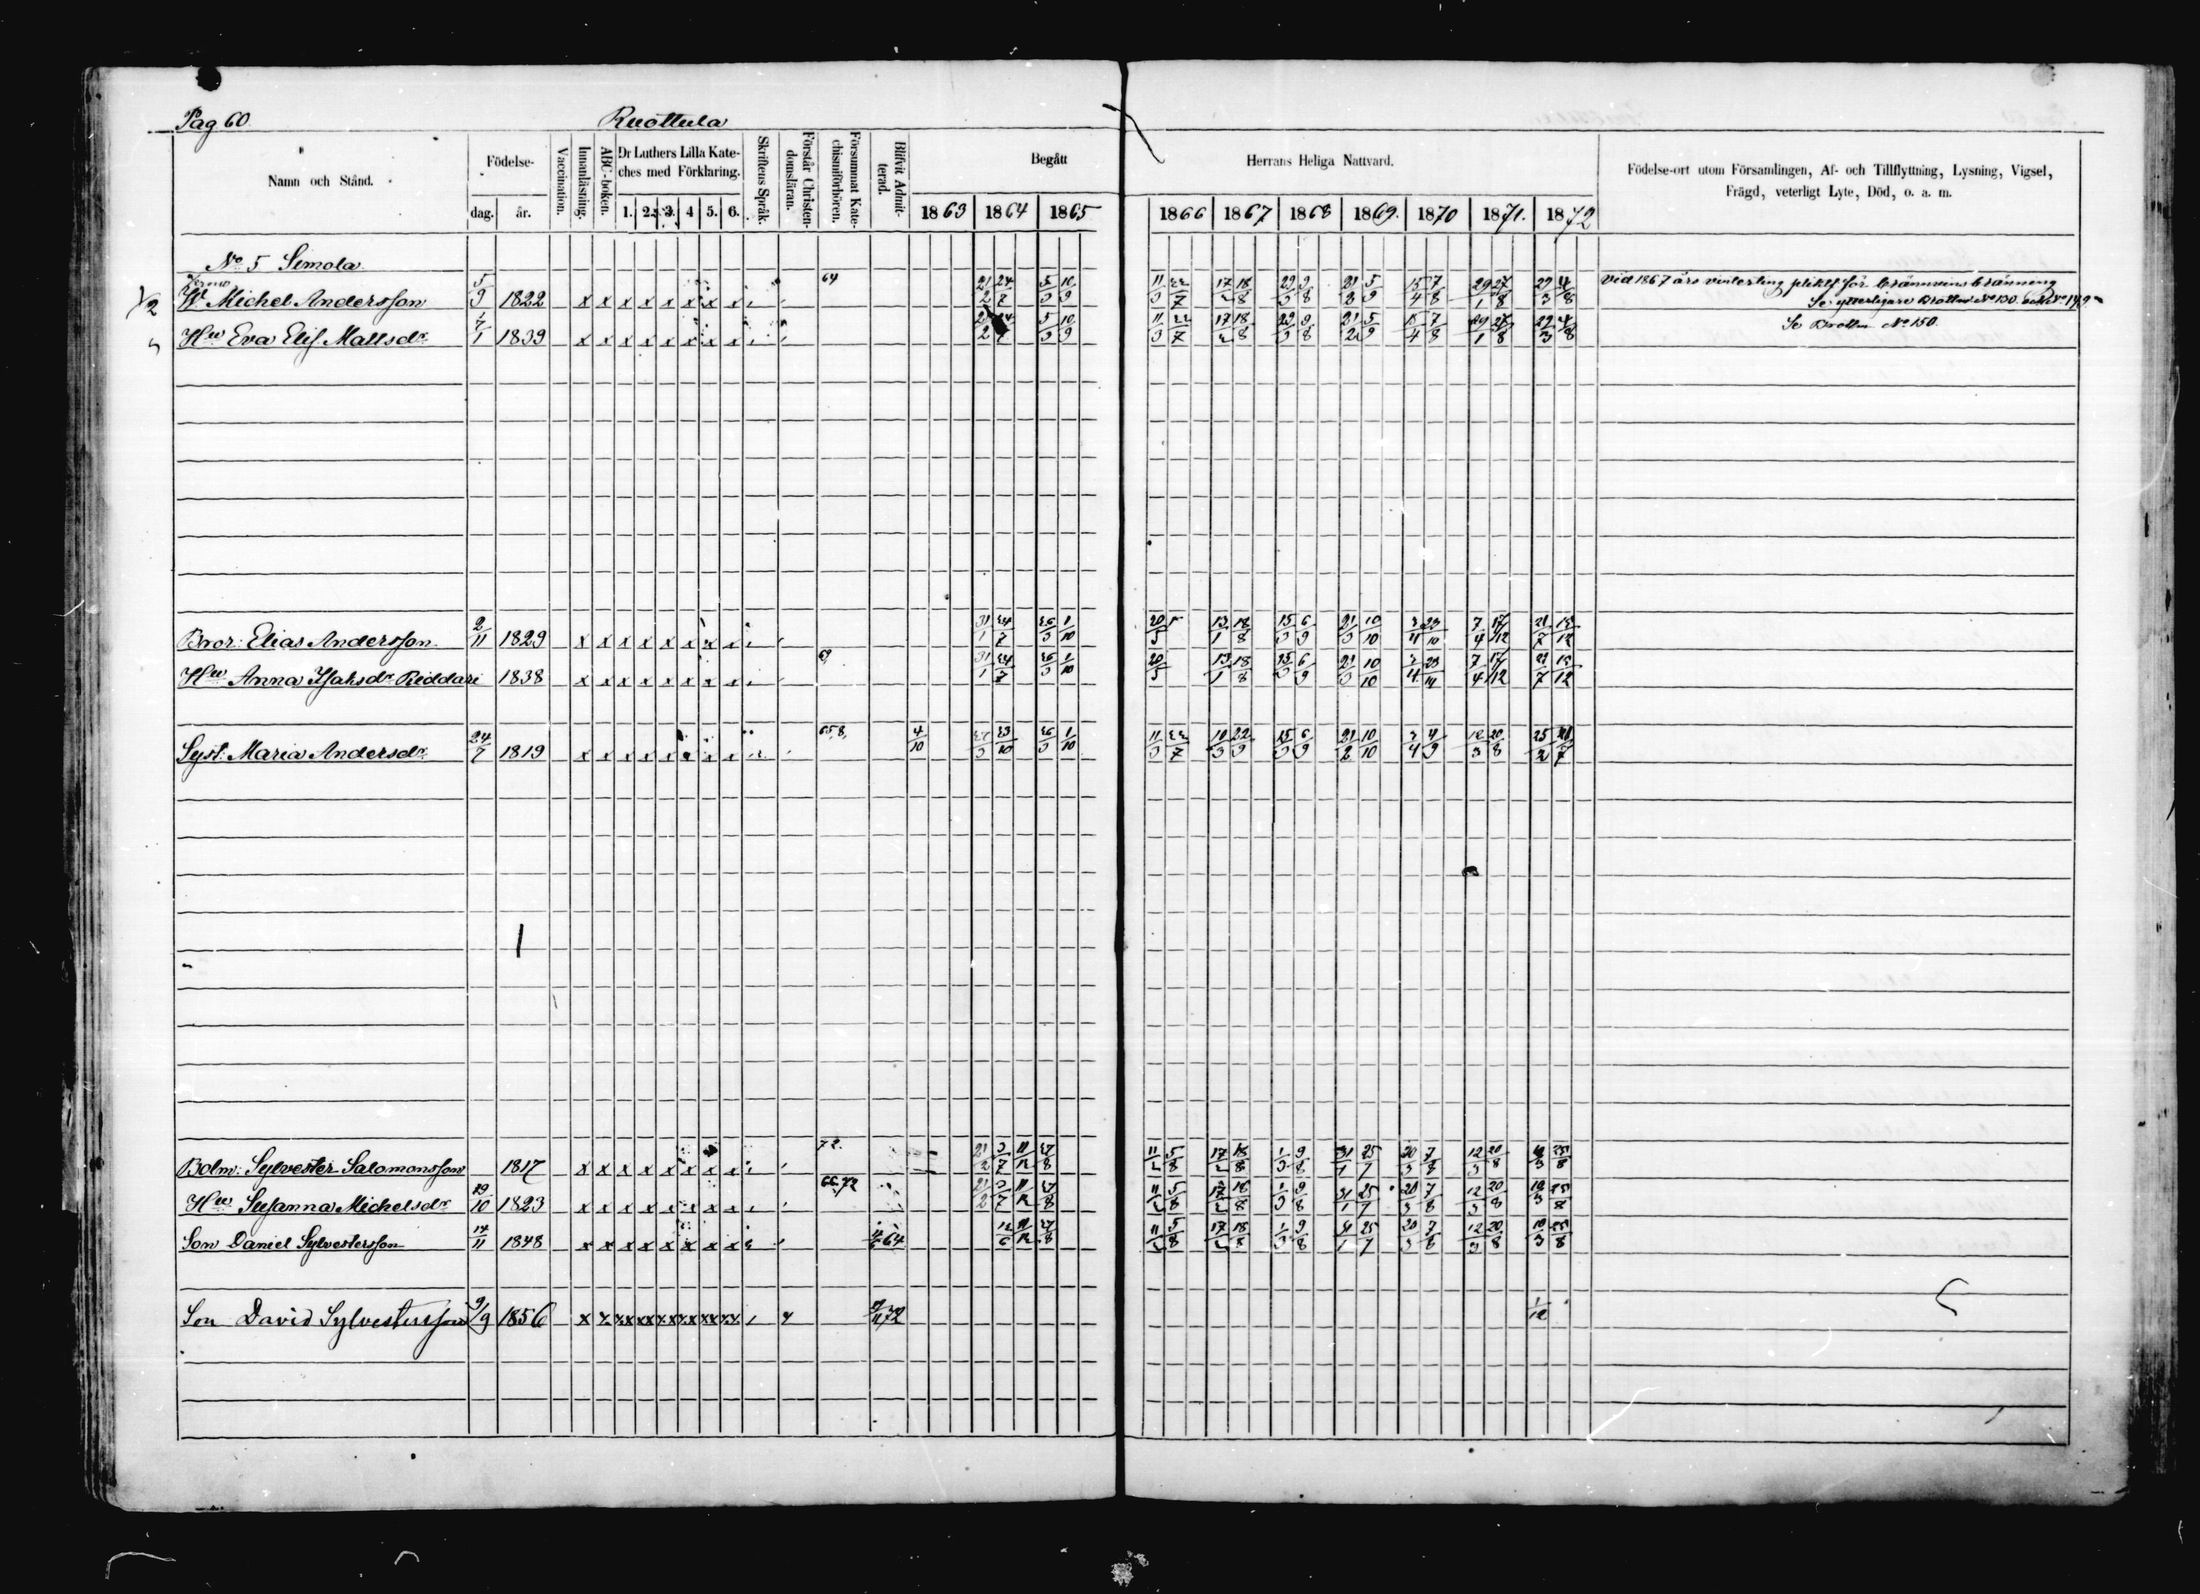 Pag 60 Ruottula
Namn och Stånd. Födelse- dag. år. Vaccination. Innanläsning. ABC-boken. Dr Luthers Lilla Kateches med Förklaring. 1. 2. 3. 4 5. 6. Skriftens Språk. Förstår Christendomsläran. Försummat Katechismiförhören. Blifvit Admitterad. Begått Herrans Heliga Nattvard. Födelse-ort utom Församlingen, Af- och Tillflyttning, Lysning, Vigsel, Frägd, veterligt Lyte, Död, o. a. m.
1863 1864 1865 1866 1867 1868 1869. 1870 1871. 1872
No 5 Simola
1/2 Michel Andersson 5/9 1822 x x x x x x x x 64 21/2 24/7 5/3 10/9 11/3 22/7 17/2 18/8 29/3 9/8 21/2 5/9 15/4 7/8 29/1 27/8 29/3 4/8 Vid 1867 års vinterting plikt för bränvinsbränning
Se ytterligare Brottm No 150.
Hu Eva Elis Mattsdr 7/1 1839 x x x x x x x x 21/2 24/7 5/3 10/9 11/3 22/7 17/2 18/8 29/3 9/8 21/2 5/9 15/4 7/8 29/1 27/8 29/3 4/8 Se Brottm No 150.
Bror: Elias Andersson 2/11 1829 x x x x x x x x 31/1 24/7 26/3 1/10 20/5 13/1 18/8 15/3 6/9 21/3 10/10 7/4 17/12 21/7 15/12
Hu Anna Isaksdr Riddari 1838 x x x x x x x x 69 31/1 24/7 26/3 1/10 20/5 13/1 18/8 15/3 6/9 21/3 10/10 7/4 17/12 21/7 15/12
Syst: Maria Andersdr 24/7 1819 x x x x x x x x 65,8, 4/10 23/10 26/3 1/10 11/3 22/7 10/3 22/9 15/3 6/9 21/2 10/10 4/9 12/3 20/8 25/2 21/7
Bolm: Sylvester Salomonsson 1817 x x x x x x x x 72. 21/2 3/7 11/12 27/8 11/2 5/8 17/2 18/8 1/3 9/8 31/1 25/7 20/3 7/8 12/3 20/8 25/8
Hu Susanna Michelsdr 29/10 1823 x x x x x x x x 66,72 21/2 3/7 11/12 27/8 11/2 5/8 17/2 18/8 1/3 9/8 31/1 25/7 20/3 7/8 12/3 20/8 25/8
Son Daniel Sylvestersson 14/11 1848 x x x x x x x x 64 12/6 11/12 27/8 11/2 5/8 17/2 18/8 1/3 9/8 25/7 20/3 7/8 12/3 20/8 25/8
Son David Sylvestersson 9/9 1856 x x xx xx xx xx xx xx 72 1/12